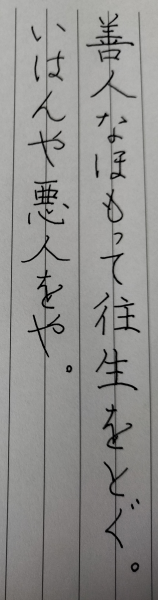 善人なほもって往生をとぐ。
いはんや悪人をや。